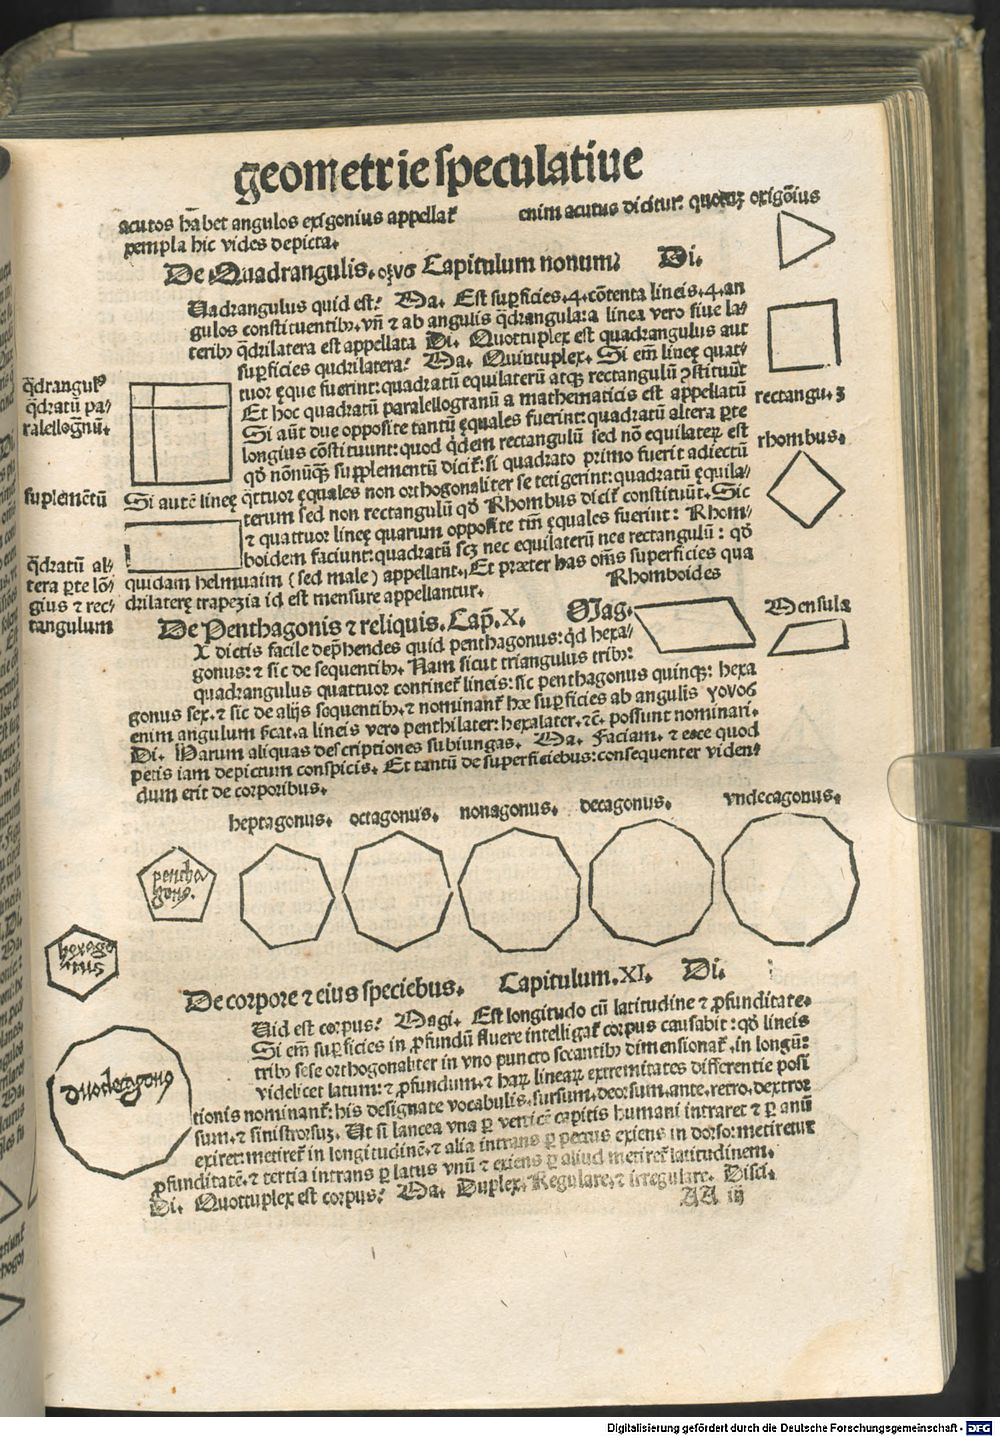 geometrie speculatiue
acutos hābet angulos exigonius appellat᷒ enim acutus dicitur: quotqȝ oxigōius
xempla hic vides depicta.
De Quadrangulis. Capitulum nonum. Di.
Uadrangulus quid est? Ma. Est suꝑficies .4. cōtenta lineis .4. an
gulos constituentibꝯ, vñ ⁊ ab angulis q̄drangula: a linea vero siue la-
teribꝯ q̄drilatera est appellata Di. Quottuplex est quadrangulus aut
suꝑficies qudrilatera? Ma. Quintuplex. Si em̄ lineę quat-
tuor ęque fuerint: quadratū equilaterū atqȝ rectangulū ꝯstituūt
Et hoc quadratū paralellogranū a mathematicis est appellatū
Si aūt due opposite tantū ęquales fuerint: quadratū altera ꝑte
longius cōstituunt: quod q̄dem rectangulū sed nō equilateꝝ est
qđ nōnūqȝ supplementū dicit᷒: si quadrato primo fuerit adiectū
Si autē lineę q̄ttuor ęquales non orthogonaliter se tetigerint: quadratū ęquila-
terum sed non rectangulū qđ Rhombus dicit᷒ constituūt. Sic
⁊ quattuor lineę quarum opposite tm̄ ęquales fuerint: Rhom-
boidem faciunt: quadratū scȝ nec equilaterū nec rectangulū: qđ
quidam helmuaim (sed male) appellant. Et præter has oms̄ superficies qua
drilaterę trapezia id est mensure appellantur.
q̄drangulꝰ
q̄dratū pa-
ralellogn̄ū.
suplemētū
q̄dratū al-
tera ꝑte lō-
gius ⁊ rec-
tangulum
rectangu.
rhombus.
Rhomboides
Mensula
De Penthagonis ⁊ reliquis. Cap̄. X. Mag.
X dictis facile dep̄hendes quid penthagonus: q̄d hexa-
gonus: ⁊ sic de sequentibꝯ. Nam sicut triangulus tribꝯ:
quadrangulus quattuor continet᷒ lineis: sic penthagonus quinqȝ: hexa
gonus sex. ⁊ sic de alijs sequentibꝯ. ⁊ nominant᷒ hæ suꝑficies ab angulis γονοσ
enim angulum s̄cat. a lineis vero penthilater: hexalater. ⁊c̄. possunt nominari.
Di. Harum aliquas descriptiones subiungas. Ma. Faciam. ⁊ ecce quod
petis iam depictum conspicis. Et tantū de superficiebus: consequenter viden-
dum erit de corporibus.
heptagonus. octagonus. nonagonus. decagonus. vndecagonus.
pentha
gonꝰ.
hexago
nus
duodecagonꝰ
De corpore ⁊ eius speciebus. Capitulum. XI. Di.
Uid est corpus? Magi. Est longitudo cū latitudine ⁊ ꝓfunditate.
Si em̄ suꝑficies in ꝓfundū fluere intelligat᷒ corpus causabit: qđ lineis
tribꝯ sese orthogonaliter in vno puncto secantibꝯ dimensionat᷒, in longū:
videlicet latum: ⁊ ꝓfundum. ⁊ haꝝ lineaꝝ extremitates differentie posi
tionis nominant᷒: his designate vocabulis. sursum, deorsum, ante. retro. dextror
sum. ⁊ sinistrorsuȝ. Ut si lancea vna ꝑ verticē capitis humani intraret ⁊ ꝑ anū
exiret: metiret᷒ in longitudinē. ⁊ alia intrans ꝑ pectus exiens in dorso: metiretur
ꝓfunditatē. ⁊ tertia intrans ꝑ latus vnū ⁊ exiens ꝑ aliud metiret᷒ latitudinem.
Di. Quottuplex est corpus? Ma. Duplex. Regulare. ⁊ irregulare. Disci.
AA iij
Digitalisierung gefördert durch die Deutsche Forschungsgemeinschaft - DFG